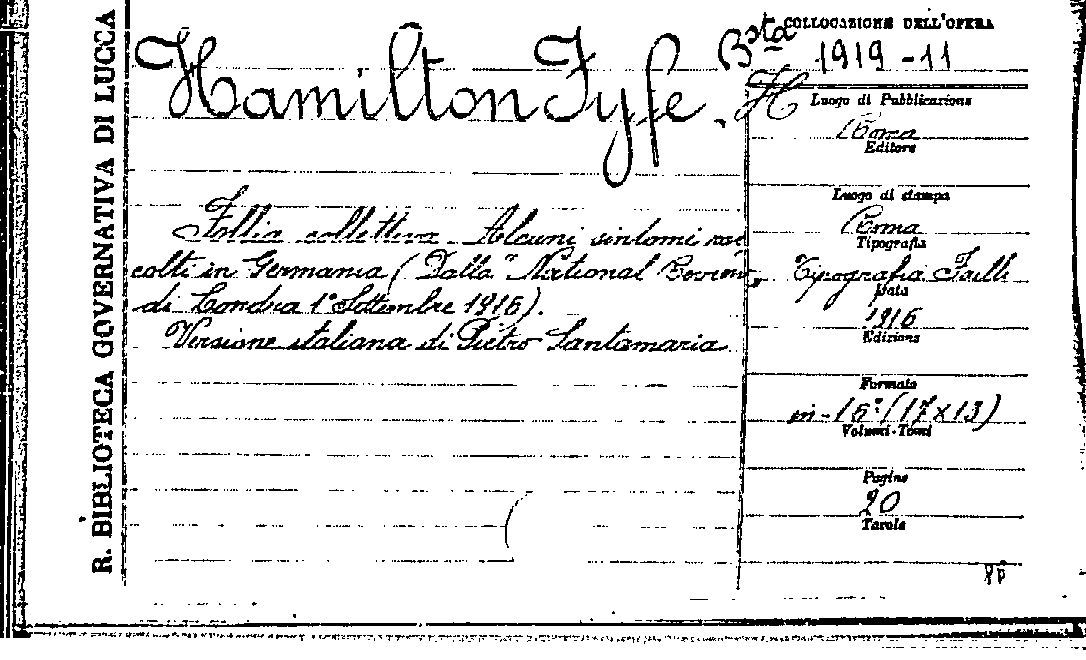 R. BIBLIOTECA GOVERNATIVA DI LUCCA
Hamilton Fyfe. H
Follia collettiva. Alcuni sintomi rac
colti in Germania (Dalla "National Review,
di Londra 1° Settembre 1916).
Versione italiana di Pietro Santamaria
COLLOCAZIONE DELL'OPERA
Bsta 1919-11
Luogo di Pubblicazione
Roma
Editore
Luogo di stampa
Roma
Tipografia
Tipografia
Data
1916
Edizione
Formato
in-16° (17x13)
Volumi-Tomi
Pagine
20
Tavole